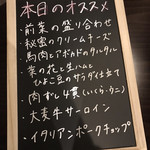 本日のオススメ
・前菜の盛り合わせ
・秘蜜のクリームチーズ
・馬肉とアボカドのタルタル
・菜の花と生ハムと
ひよこ豆のサラダ仕立て
・肉ずし4貫(いくら・うに)
・大麦牛サーロイン
・イタリアンポークチョップ